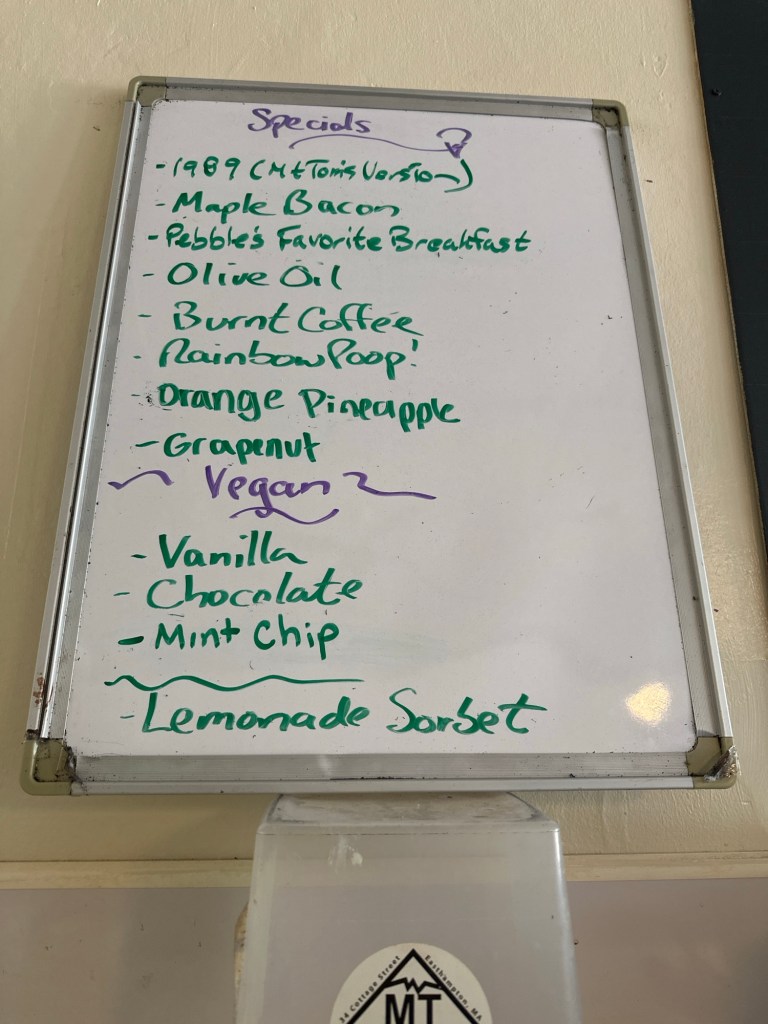 Specials
- 1989 (Mt Tom's Version)
- Maple Bacon
- Pebble's Favorite Breakfast
- Olive Oil
- Burnt Coffee
- Rainbow Poop!
- Orange Pineapple
- Grapenut
Vegan
- Vanilla
- Chocolate
- Mint Chip
- Lemonade Sorbet
34 Cottage Street Easthampton, MA
MT